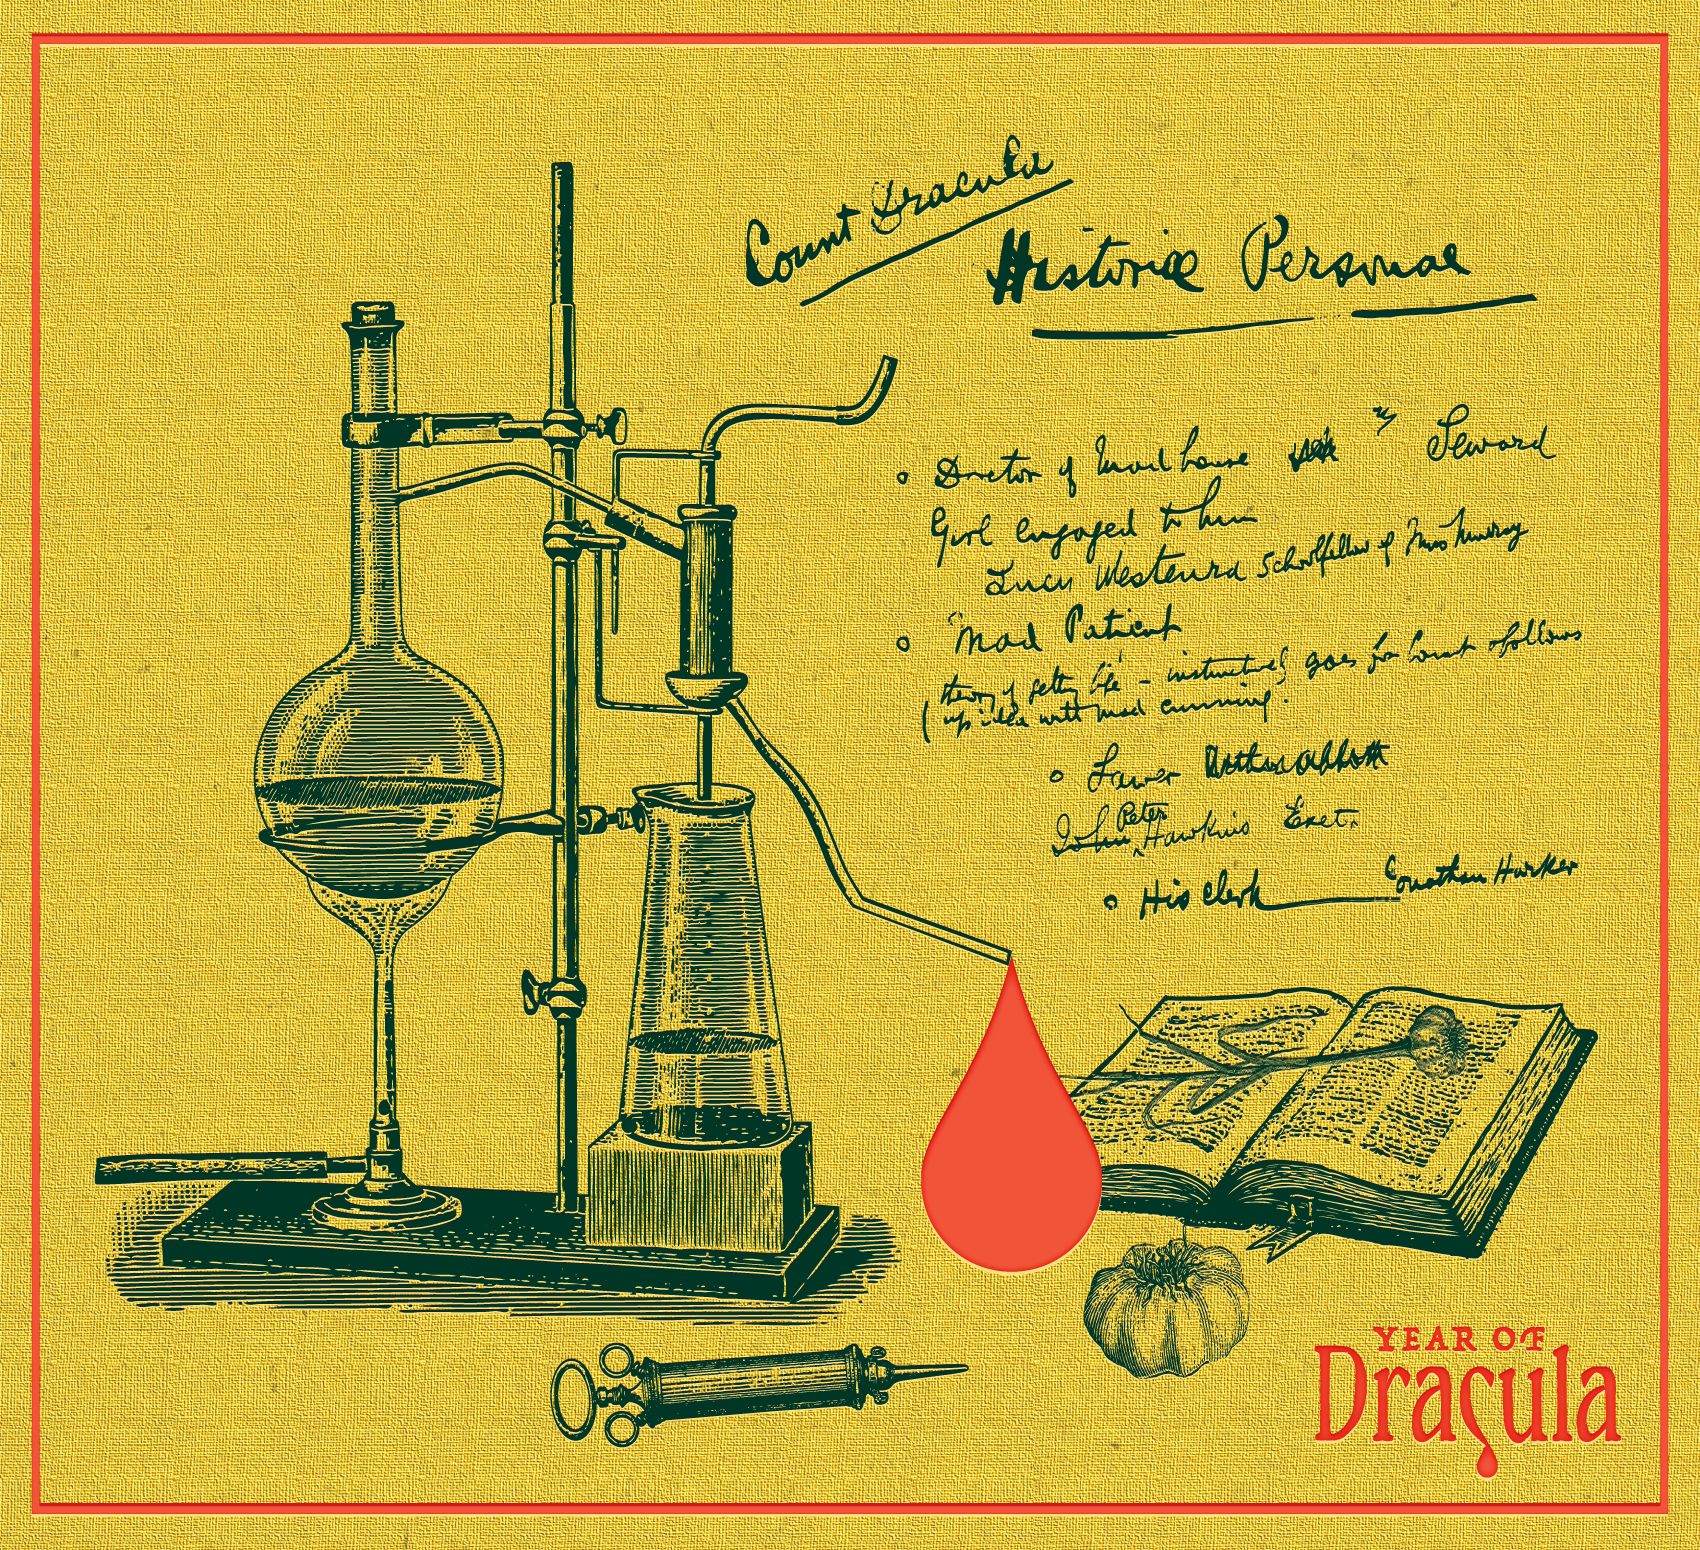 Count Dracula
Historiæ Personae
Director of Mad house Seward
Girl engaged to him
Lucy Westenra Schoolfellow of Miss Murray
Mad Patient
(theory of getting life - instinctively goes for Count & follows
up idea with mad cunning.
Lawyer Arthur Abbott
John Peter Hawkins Exeter
His Clerk Jonathan Harker
YEAR OF
Dracula